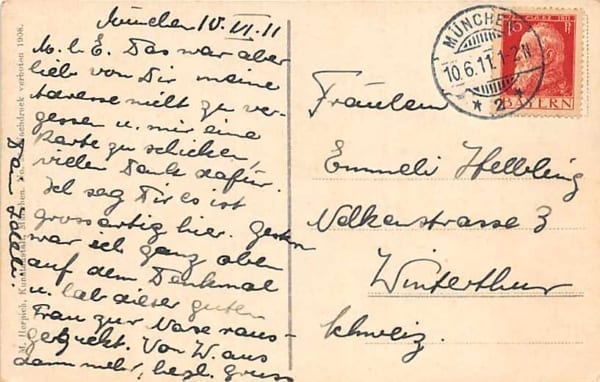 München 10. VI. 11
M. l. E. Das war aber
lieb von Dir meine
Adresse nicht zu ver-
gessen u. mir eine
Karte zu schicken,
vielen Dank dafür.
Ich sag Dir es ist
grossartig hier. Gestern
war ich ganz oben
auf dem Denkmal
u. hab dieser guten
Frau zur Nase raus-
geguckt. Von W. aus
dann mehr, herzl. Gruss
M. Herpich, Kunstanstalt, München. Nachdruck verboten 1908.
MÜNCHEN
10.6.11. 1-2 N.
* 2 *
10
BAYERN
Fräulein
Emmeli Helbling
Nelkenstrasse 3
Winterthur
Schweiz.